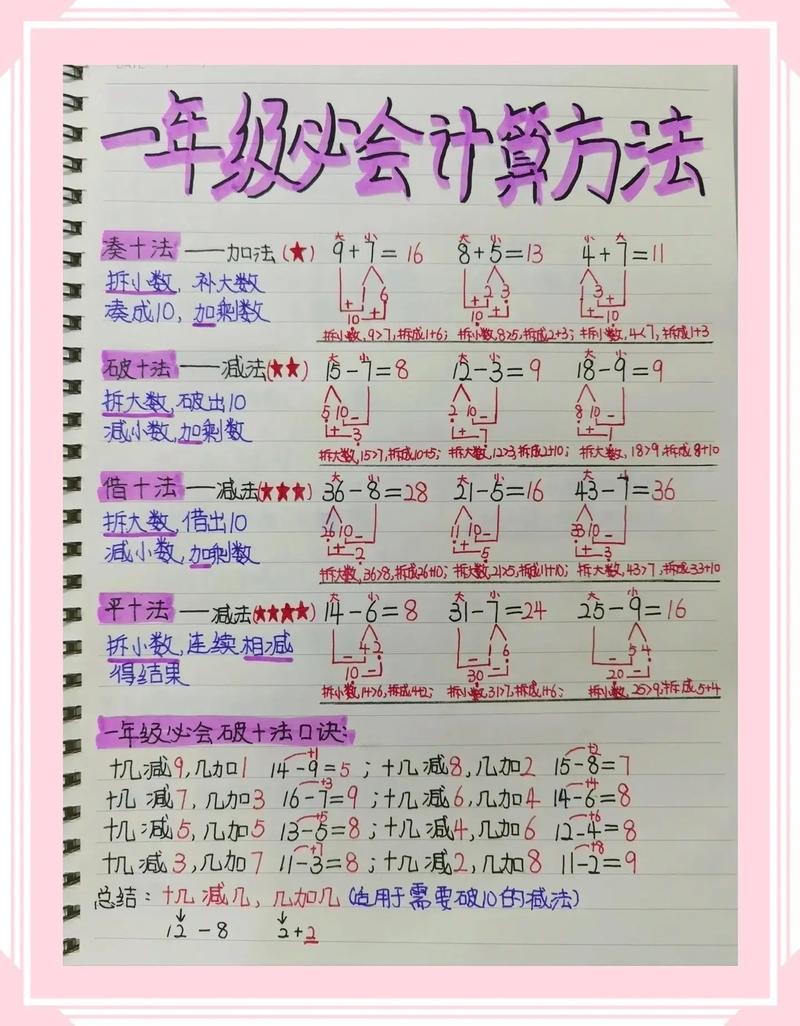 一年级必会计算方法
凑十法——加法(★) 9+7=16 8+5=13 4+7=11
拆小数,补大数
凑成10,加剩数
拆小数,9>7,拆成1+6; 拆小数,8>5,拆成2+3; 拆小数,4<7,拆成1+3
破十法——减法(★★) 15-7=8 12-3=9 18-9=9
拆大数,破出10
减小数,加剩数
拆大数,15>7,拆成10+5; 拆大数,12>3,拆成2+10; 拆大数,18>9,拆成8+10
借十法——减法(★★★) 36-8=28 21-5=16 43-7=36
拆大数,借出10
减小数,加剩数
拆大数,36>8,拆成26+10; 拆大数,21>5,拆成11+10; 拆大数,43>7,拆成33+10
平十法——减法(★★★★) 14-6=8 31-7=24 25-9=16
拆小数,连续相减
得结果
拆小数,14>6,拆成4+2; 拆小数,31>7,拆成1+6; 拆小数,25>9,拆成5+4
一年级必会破十法口诀:
十几减9,几加1 14-9=5;十几减8,几加2 15-8=7
十几减7,几加3 16-7=9;十几减6,几加4 14-6=8
十几减5,几加5 13-5=8;十几减4,几加6 12-4=8
十几减3,几加7 11-3=8;十几减2,几加8 11-2=9
总结:十几减几,几加几(适用于需要破10的减法)
12-8 2+2